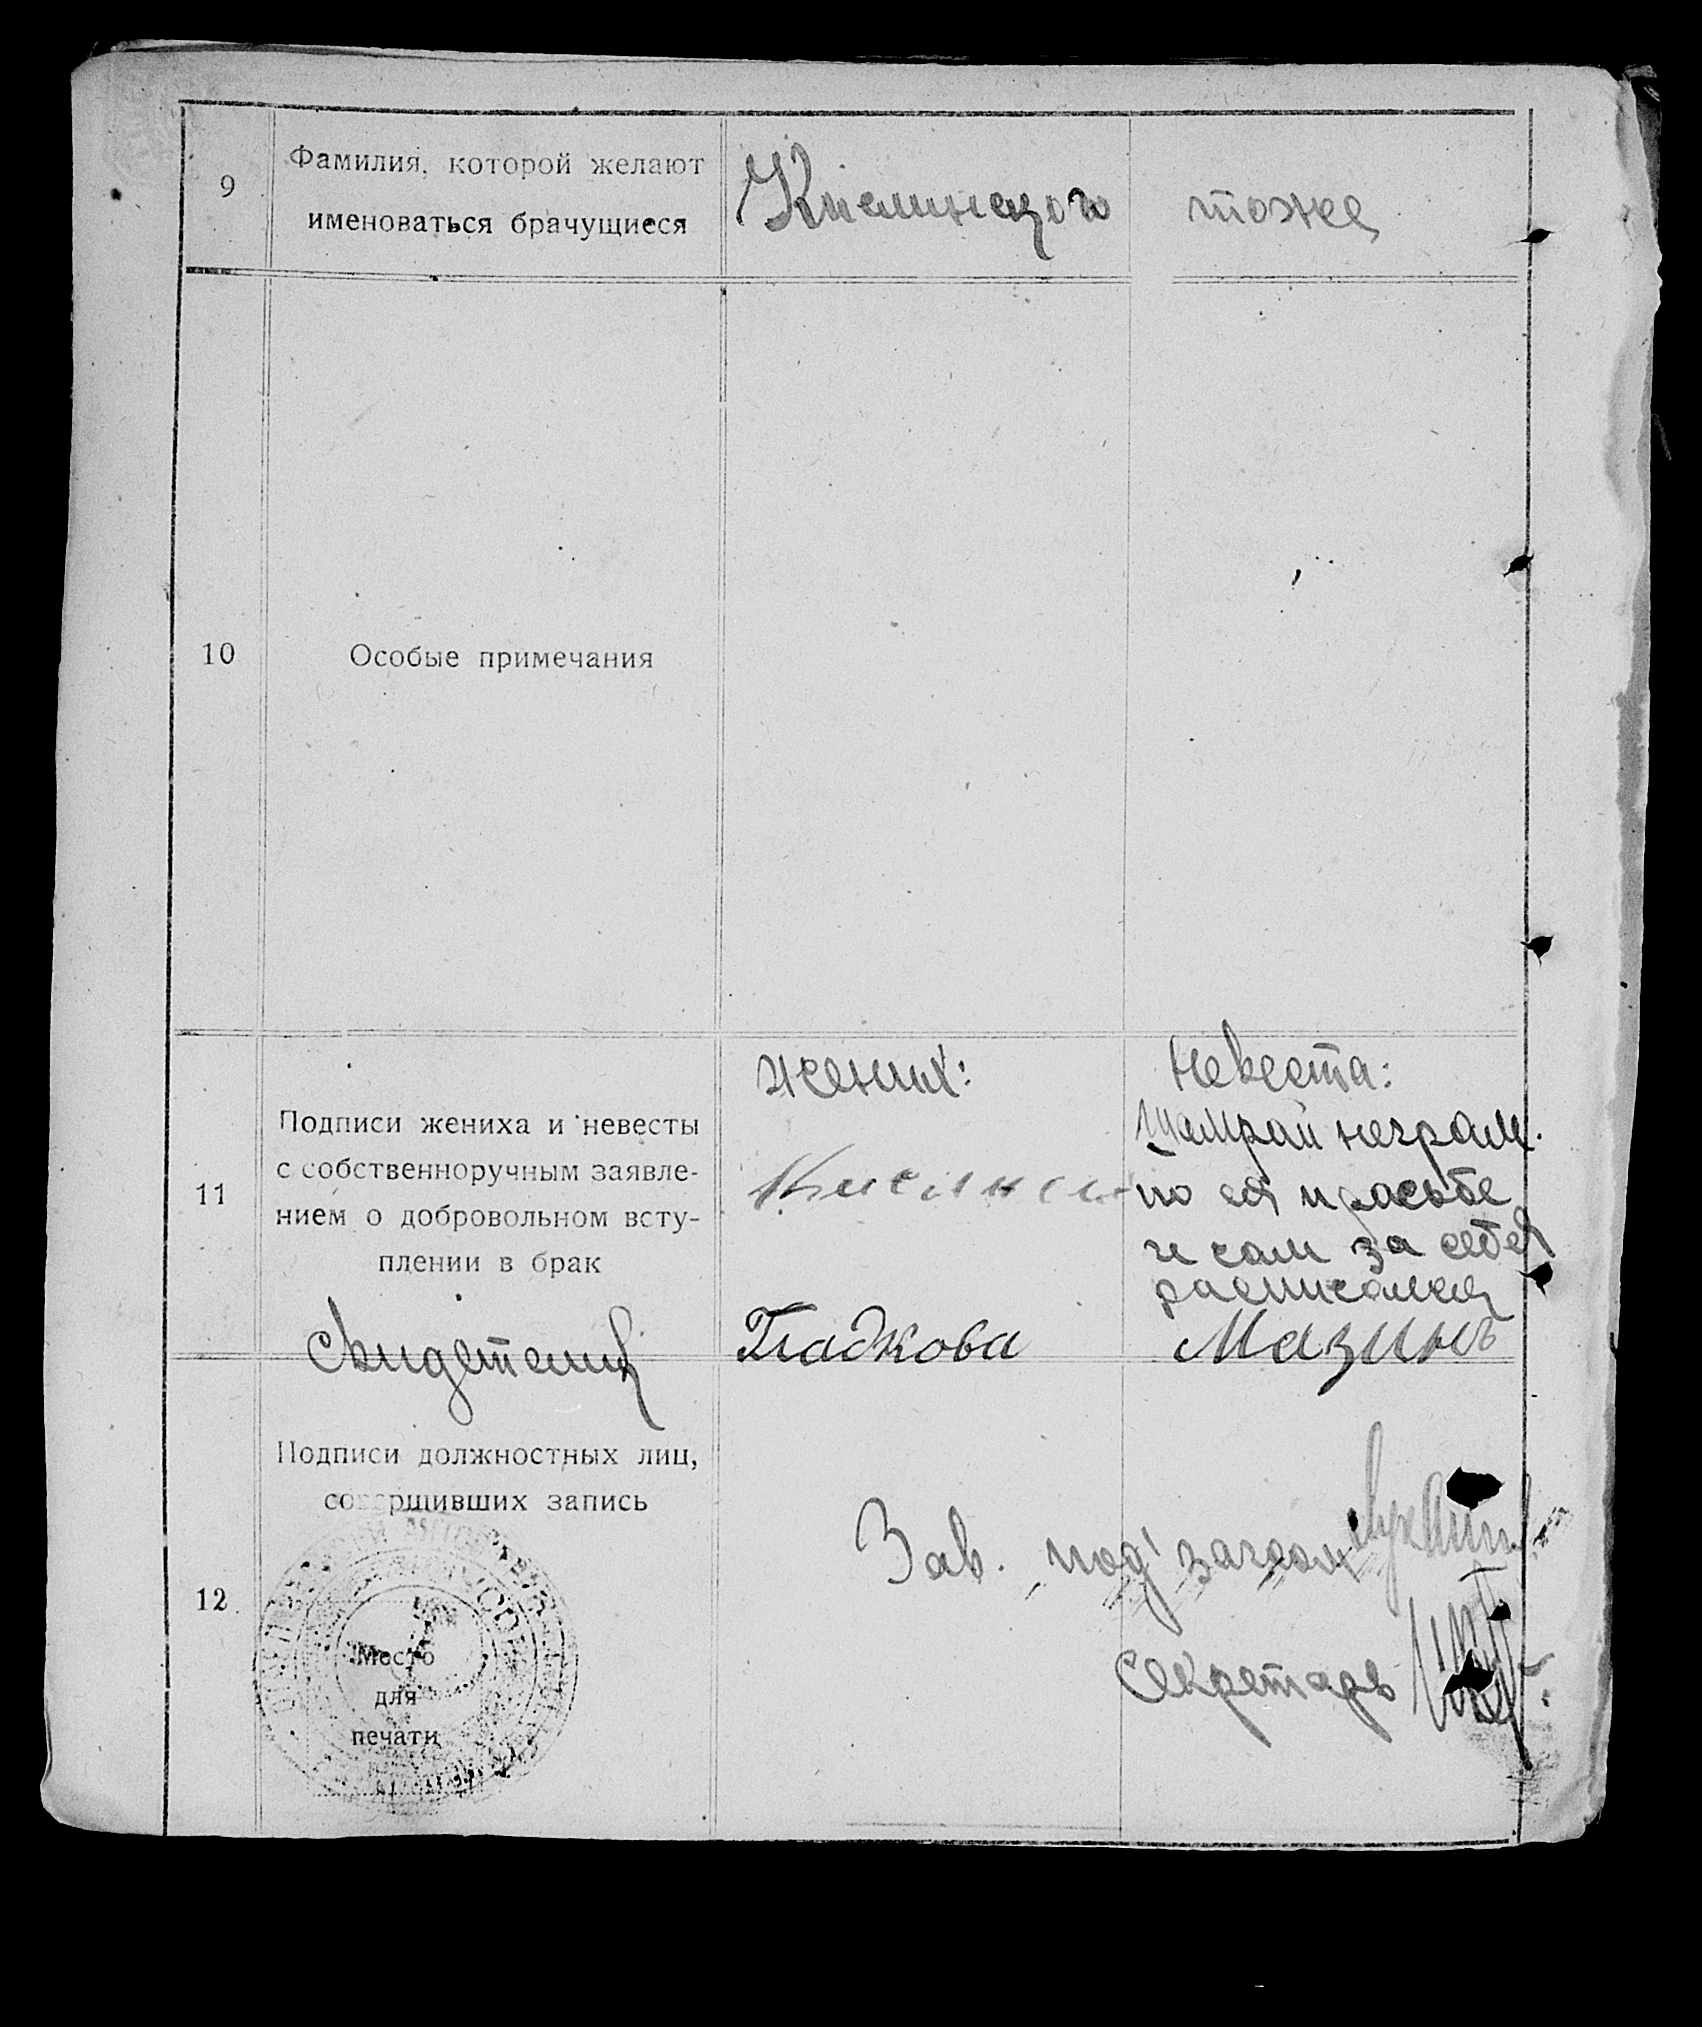 9
Фамилия, которой желают
именоваться брачущиеся
тоже
10
Особые примечания
жених:
Невеста:
11
Подписи жениха и невесты
с собственноручным заявле-
нием о добровольном всту-
плении в брак
Шамрай неграм.
по ея просьбе
и сам за себя
расписался
Свидетели
Гладкова
Мазинъ
Подписи должностных лиц,
совершивших запись
Зав. под
12
Секретарь
Место
для
печати